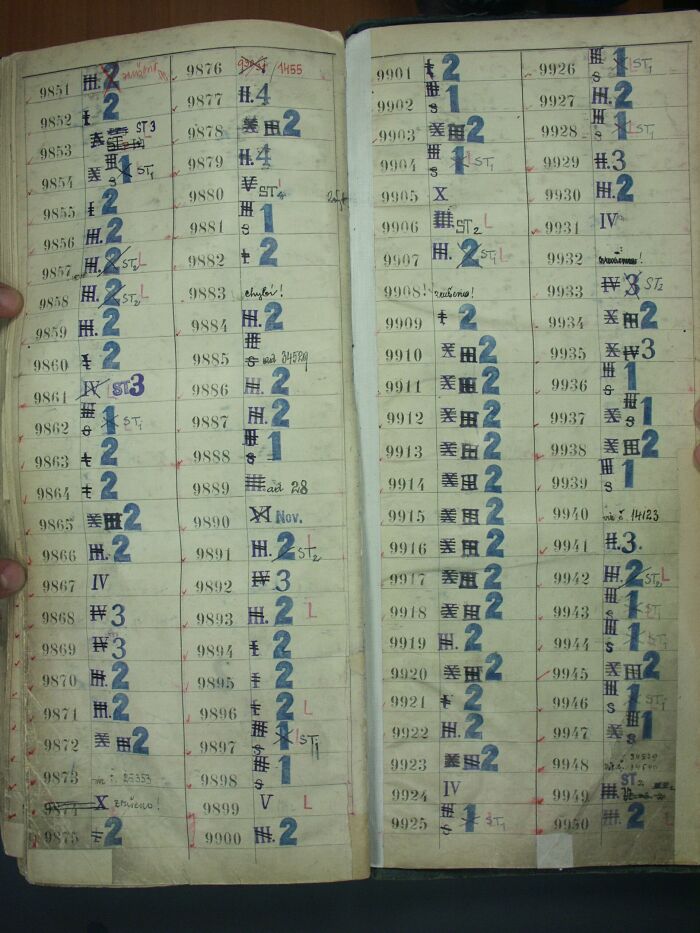 9851 III. 2
9852 I 2
9853 X ST 3
9854 X III S 1 ST1
9855 I 2
9856 III. 2
9857 III. 2 ST2 L
9858 III. 2 ST2 L
9859 III. 2
9860 I 2
9861 IV L ST3
9862 III S 1 ST1
9863 I 2
9864 I 2
9865 X III 2
9866 III. 2
9867 IV
9868 IV 3
9869 IV 3
9870 III. 2
9871 III. 2
9872 X III 2
9873 25353
9874 X zničeno!
9875 I 2
9876 1455
9877 II. 4
9878 X III 2
9879 II. 4
9880 V ST4 L
9881 III S 1
9882 I 2
9883 chybí!
9884 III. 2
9885 III S ad 34529
9886 III. 2
9887 III. 2
9888 III S 1
9889 III ad 28
9890 XI Nov.
9891 III. 2 ST2 L
9892 IV 3
9893 III. 2 L
9894 I 2
9895 I 2
9896 I 2 L
9897 III S 1 L ST1
9898 III S 1
9899 V L
9900 III. 2
9901 I 2
9902 III S 1
9903 X III 2
9904 III S 1 L ST1
9905 X
9906 III. ST2 L
9907 III. 2 ST1 L
9908! zrušeno!
9909 I 2
9910 X III 2
9911 X III 2
9912 X III 2
9913 X III 2
9914 X III 2
9915 X III 2
9916 X III 2
9917 X III 2
9918 X III 2
9919 III. 2
9920 X III 2
9921 I 2
9922 III. 2
9923 X III 2
9924 IV
9925 III S 1 ST1
9926 III S 1 L ST1
9927 III. 2
9928 III S 1 L ST1
9929 II. 3
9930 III. 2
9931 IV
9932
9933 IV 3 ST2
9934 X III 2
9935 X IV 3
9936 III S 1
9937 X III S 1
9938 X III 2
9939 III S 1
9940 viz č. 14123
9941 II. 3.
9942 III. 2 ST2 L
9943 III S 1 ST1
9944 III S 1 ST1
9945 X III 2
9946 III S 1 ST1
9947 X III S 1
9948 34539
9949 III. ST2
9950 III. 2 L